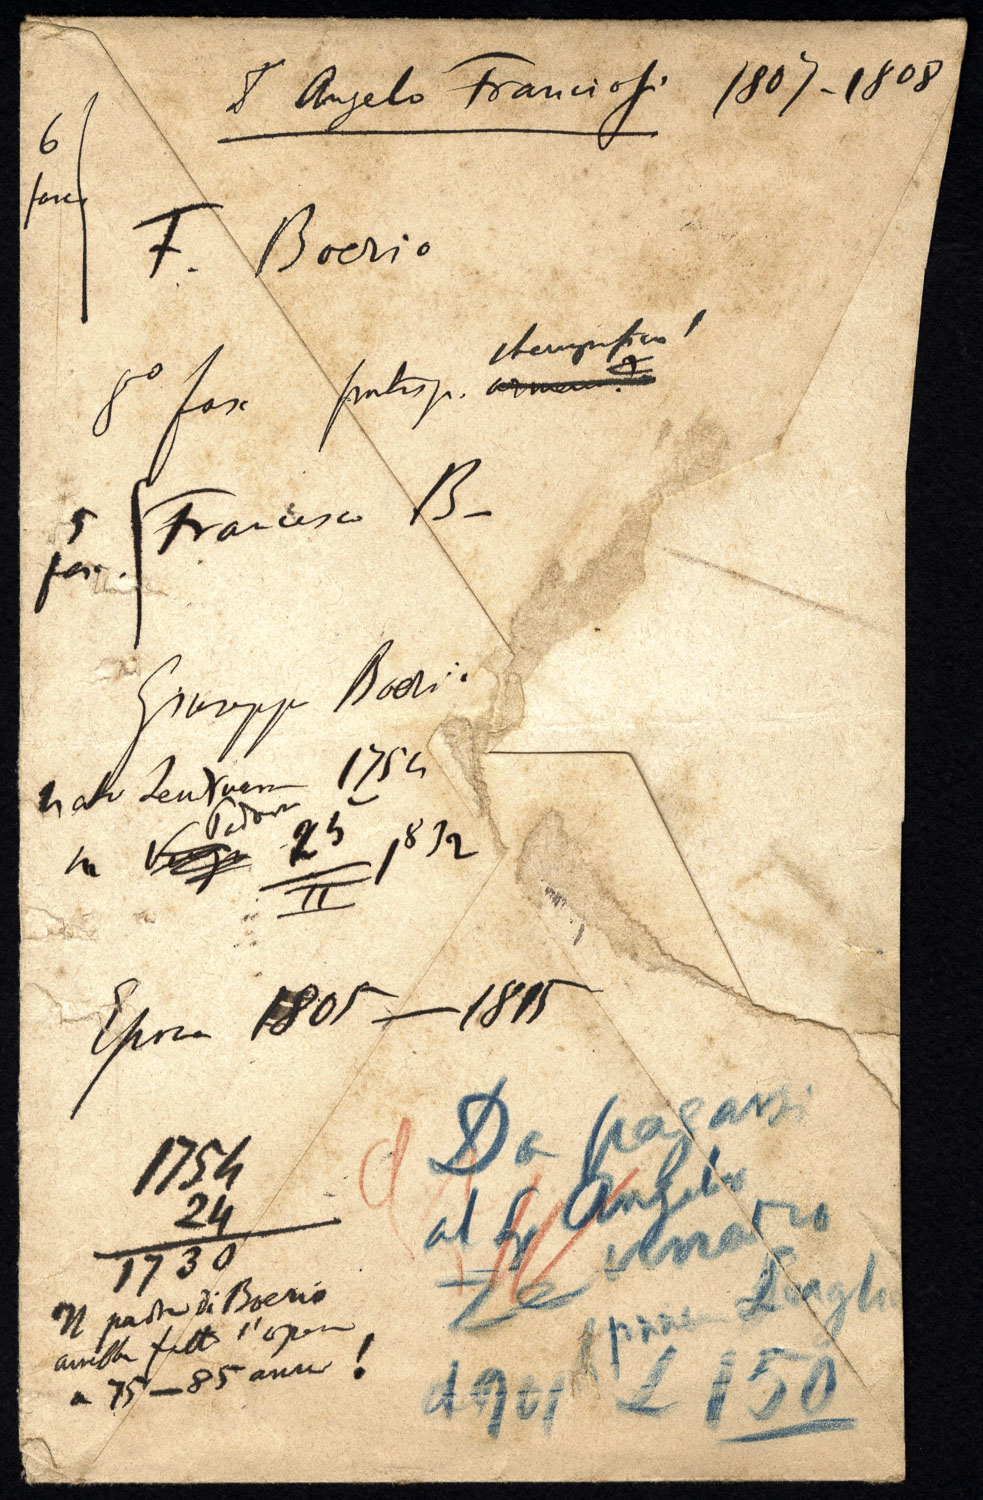 D Angelo Franciosi 1807-1808
6
fasc.
F. Boerio
8° fasc frontesp.
5
fasc.
Francesco B_
Giuseppe Boeri.
nato Lendinara 1754
m Padova 25 1832
II
Epoca 1805 — 1815
1754
24
1730
Il padre di Boerio
avrebbe fatto l'opera
a 75 — 85 anni!
Da pagarsi
al Sig Angelo
Luglio
£ 150